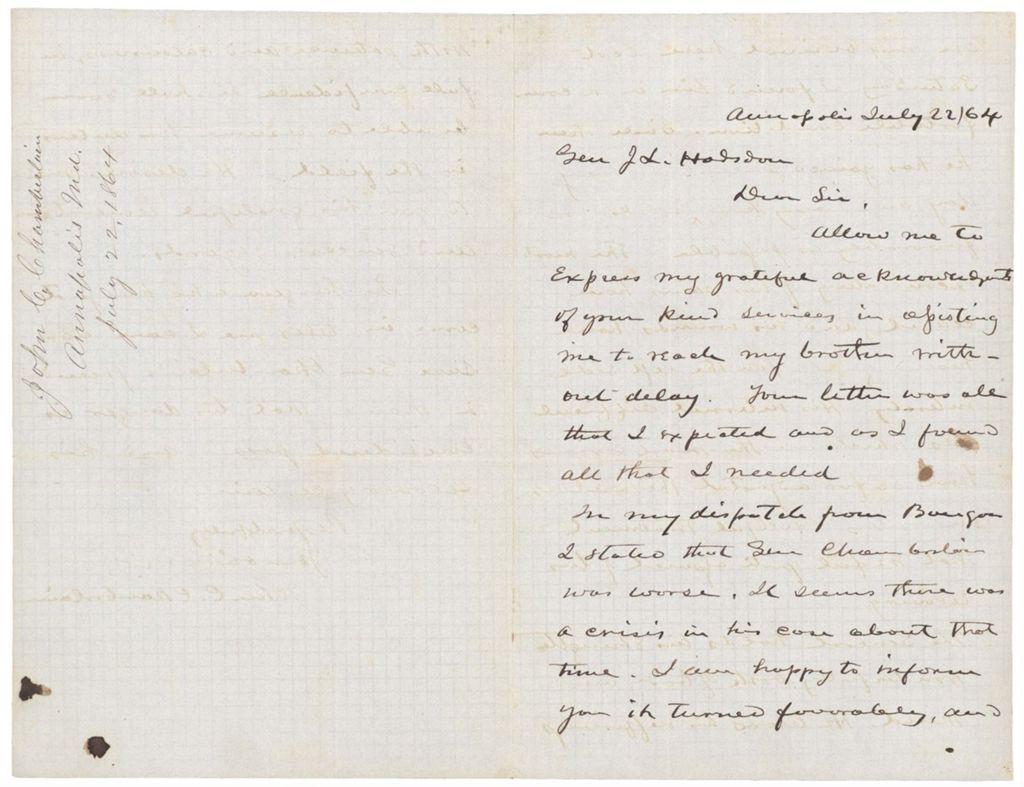 John C. Chamberlain
Annapolis Md.
July 22, 1864
Annapolis July 22/64
Gen J L. Hodsdon
Dear Sir,
Allow me to
Express my grateful acknowledgts
of your kind services in assisting
me to reach my brother with-
out delay. Your letter was all
that I expected and as I found
all that I needed
In my dispatch from Bangor
I stated that Gen Chamberlain
was worse. It seems there was
a crisis in his case about that
time. I am happy to inform
you it turned favorabley, and